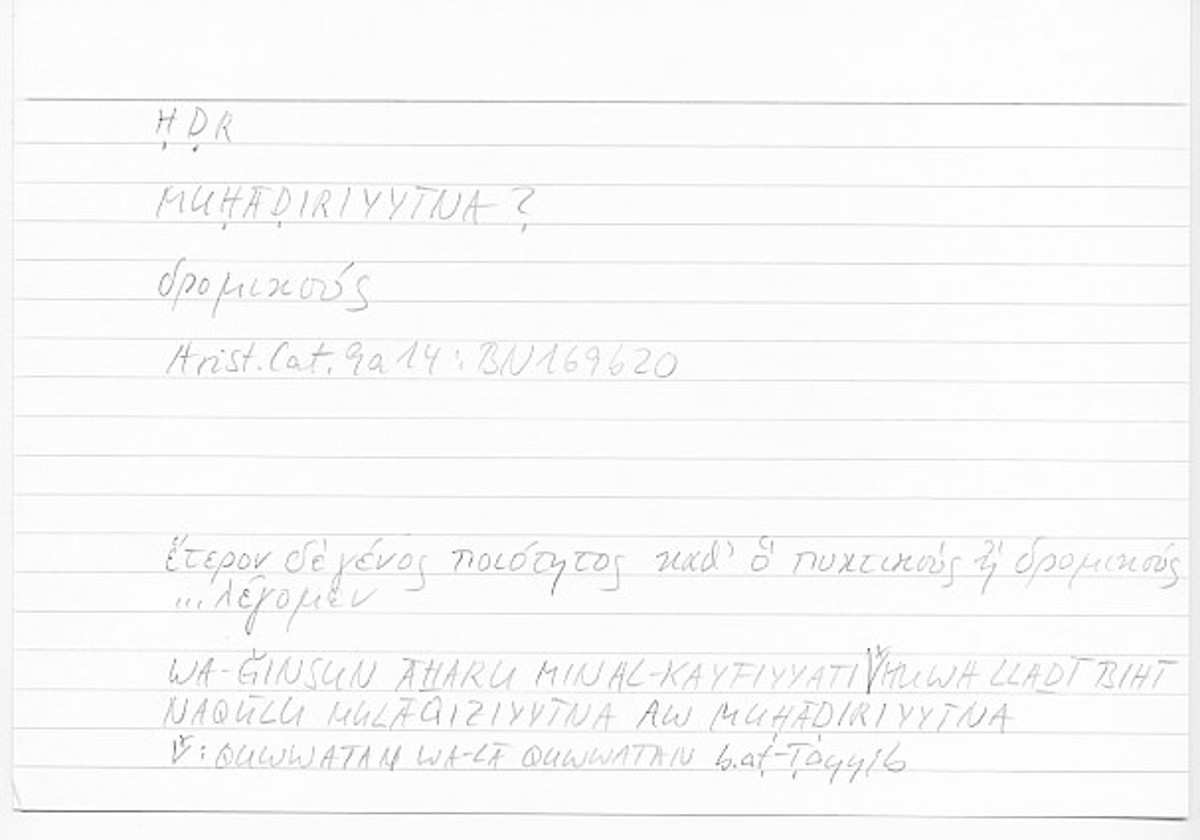 ḤḌR
MUḤĀḌIRIYYĪNA ?
δρομικούς
Arist. Cat. 9a14 : BN169b20
ἕτερον δὲ γένος ποιότητος καθ' ὃ πυκτικούς ἢ δρομικούς
... λέγομεν
WA-ǦINSUN ĀḪARU MIN AL-KAYFIYYATI HUWA LLAḎĪ BIHĪ
NAQŪLU MULĀKIZIYYĪNA AW MUḤĀḌIRIYYĪNA
: QUWWATAN WA-LĀ QUWWATAN b.aṭ-Ṭayyib